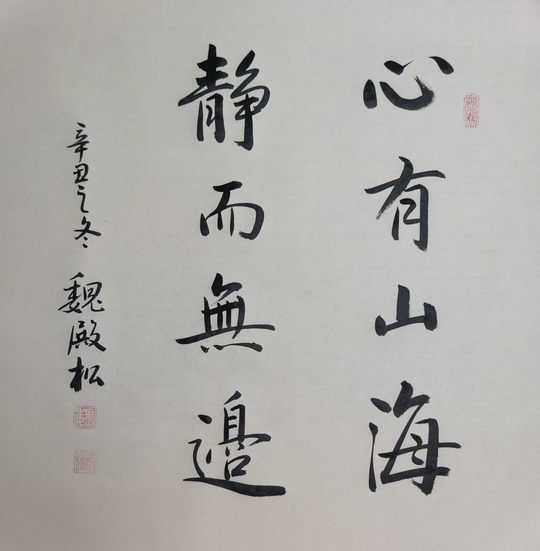 心有山海
静而無邉
辛丑之冬 魏殿松